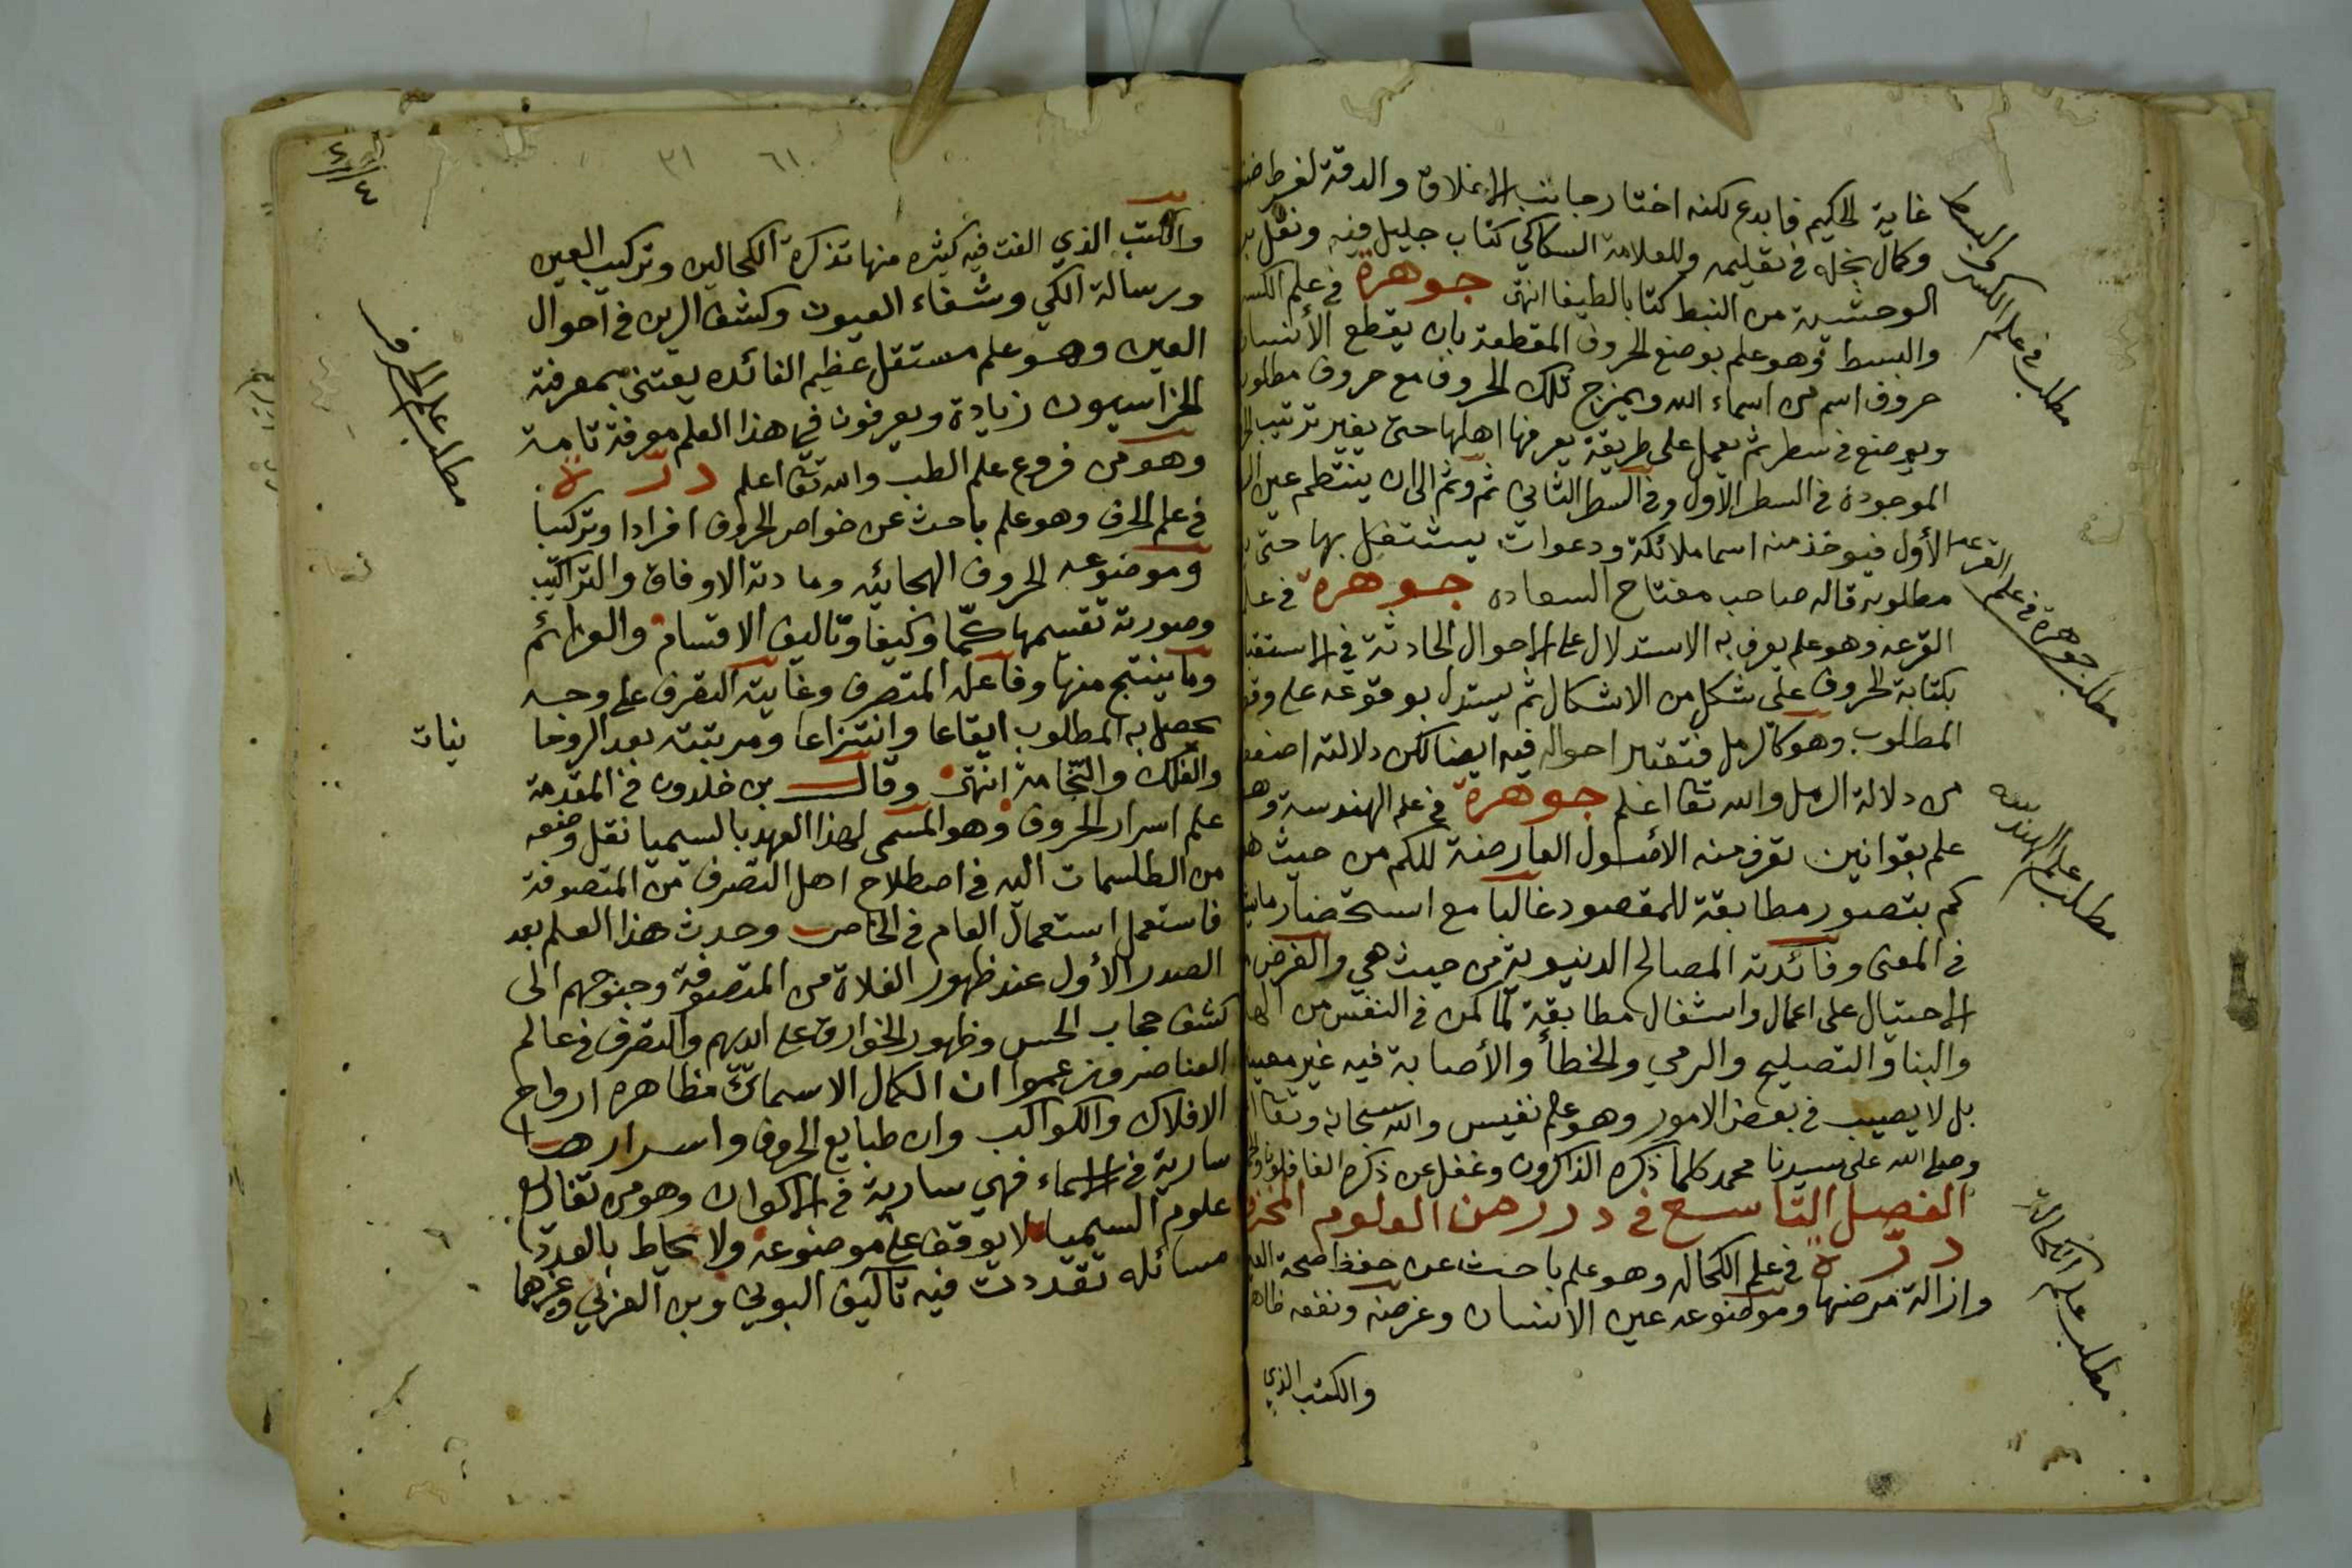 غاية الحكيم فابدع لكنه اختار جانب الاغلاق والدقة لفرط
وكمال بخله في تعليمه وللعلامة السكاكي كتاب جليل فيه ونقل
الوحشية من النبط كتابا لطيفا انتهى جوهرة في علم الكسر
والبسط وهو علم بوضع الحروف المقطعة بان يقطع الأنسان
حروف اسم من اسماء الله ويمزج تلك الحروف مع حروف مطلوبه
ويوضع في سطر ثم يعمل على طريقة يعرفها اهلها حتى يغير ترتيب
الموجودة في السطر الأول وفي السطر الثاني ثم وثم الى ان ينتظم عين
الأول فيوخذ منه اسما ملائكة ودعوات يشتغل بها حتى
مطلوبه قاله صاحب مفتاح السعاده جوهرة في علم
القرعه وهو علم يعرف به الاستدلال على الاحوال الحادثة في
بكتابة الحروف على شكل من الاشكال ثم يستدل بوقوعه على
المطلوب وهو كالرمل فتعتبر احواله فيه ايضا لكن دلالته اضعف
من دلالة الرمل والله تعا اعلم جوهرة في علم الهندسة وهو
علم بقوانين تعرف منه الأصول العارضة للكم من حيث هو
كم بتصور مطابقة للمقصود غالبا مع استحضار
في المعنى وفائدته المصالح الدنيوية من حيث هي والغرض
الاحتيال على اعمال واشغال مطابقة لما كمن في النفس من
والبنا والتصليح والرمي والخطأ والأصابة فيه غير معيب
بل لا يصيب في بعض الامور وهو علم نفيس والله سبحانه وتعا
وصلى الله على سيدنا محمد كلما ذكره الذاكرون وغفل عن ذكره الغافلون
الفصل التاسع في درر من العلوم
درّة في علم الكحاله وهو علم باحث عن حفظ صحة العين
وازالة مرضها وموضوعه عين الانسان وغرضه ونفعه ظاهر
والكتب الذي
مطلب في علم الكسر والبسط
مطلب جوهرة في علم القرعه
مطلب علم الهندسه
مطلب علم الكحالة
٦١
٣١
والكتب الذي الفت فيه كثيره منها تذكرة الكحالين وتركيب العين
ورسالة الكي وشفاء العيون وكشف الرين في احوال
العين وهو علم مستقل عظيم الفائده يعتنى بمعرفته
الخراسيون زيادة ويعرفون في هذا العلم معرفة تامة
وهو من فروع علم الطب والله تعا اعلم درّة
في علم الحرف وهو علم باحث عن خواص الحروف افرادا وتركيبا
وموضوعه الحروف الهجائيه ومادته الاوفاق والتراكيب
وصورته تقسيمها كمّا وكيفا وتاليف الاقسام والعزائم
وما ينتج منها وفاعله المتصرف وغايته التصرف على وجه
يحصل به المطلوب ايقاعا وانتزاعا ومرتبته بعد الروحا
نيات
والفلك والنجامة انتهى وقال بن خلدون في المقدمة
علم اسرار الحروف وهو المسمى لهذا العهد بالسيميا نقل وضعه
من الطلسمات اليه في اصطلاح اهل التصرف من المتصوفة
فاستعمل استعمال العام في الخاص وحدث هذا العلم بعد
الصدر الأول عند ظهور الغلاة من المتصوفة وجنوحهم الى
كشف حجاب الحس وظهور الخوارق على ايديهم والتصرف في عالم
العناصر وزعموا ان الكمال الاسمائيّ مظاهره ارواح
الافلاك والكواكب وان طبايع الحروف واسرارها
سارية في الاسماء فهي سارية في الاكوان وهو من تفاريع
علوم السيميا لا يوقف على موضوعه ولا يحاط بالعدد
مسائله تعددت فيه تآليف البوني وبن العربي وغيرهما
مطلب علم الحرف